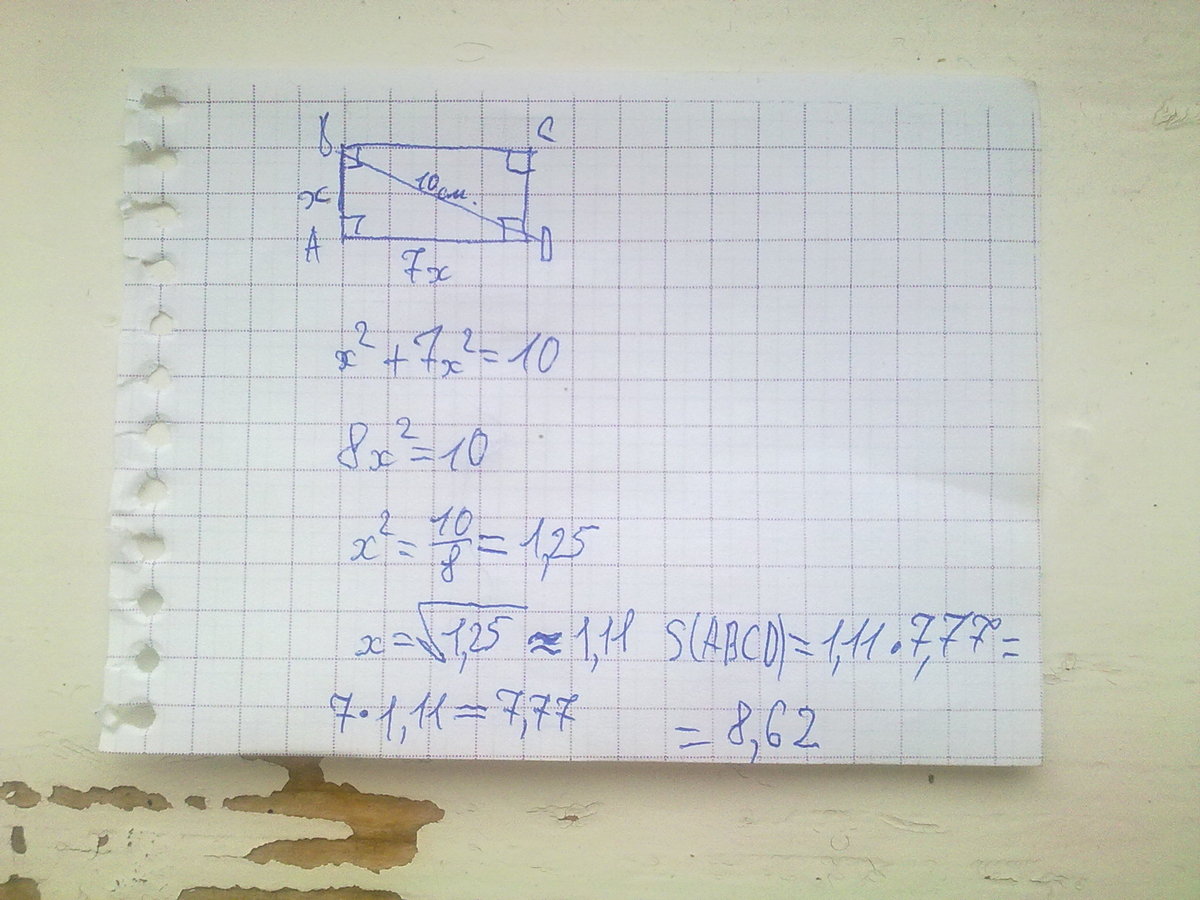 B C
x 10 см.
A D
7x
x² + 7x² = 10
8x² = 10
x² = 10/8 = 1,25
x = √1,25 ≈ 1,11 S(ABCD) = 1,11 · 7,77 =
7 · 1,11 = 7,77 = 8,62